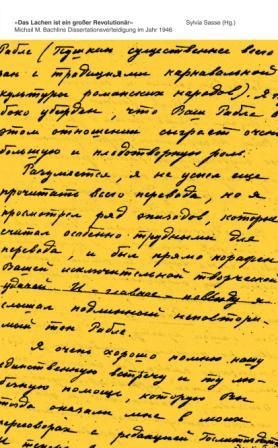 »Das Lachen ist ein großer Revolutionär« Sylvia Sasse (Hg.)
Michail M. Bachtins Dissertationsverteidigung im Jahr 1946
Рабле (Пушкин существеннее всего
с традициями карнавальной
культуры романских народов). Я
боко убежден, что Ваш Рабле в
этом отношении сыграет очень
большую и плодотворную роль.
Разумеется, я не успел еще
прочитать всего перевода, но я
просмотрел ряд эпизодов, которые
считал особенно трудными для
перевода, и был прямо поражен
Вашей исключительной творческой
удачей. И – главное – повсюду я
слышал подлинный неповтори-
мый тон Рабле.
Я очень хорошо помню нашу
единственную встречу и ту лю-
безную помощь, которую Вы
тогда оказали мне в моих
переговорах с редакцией